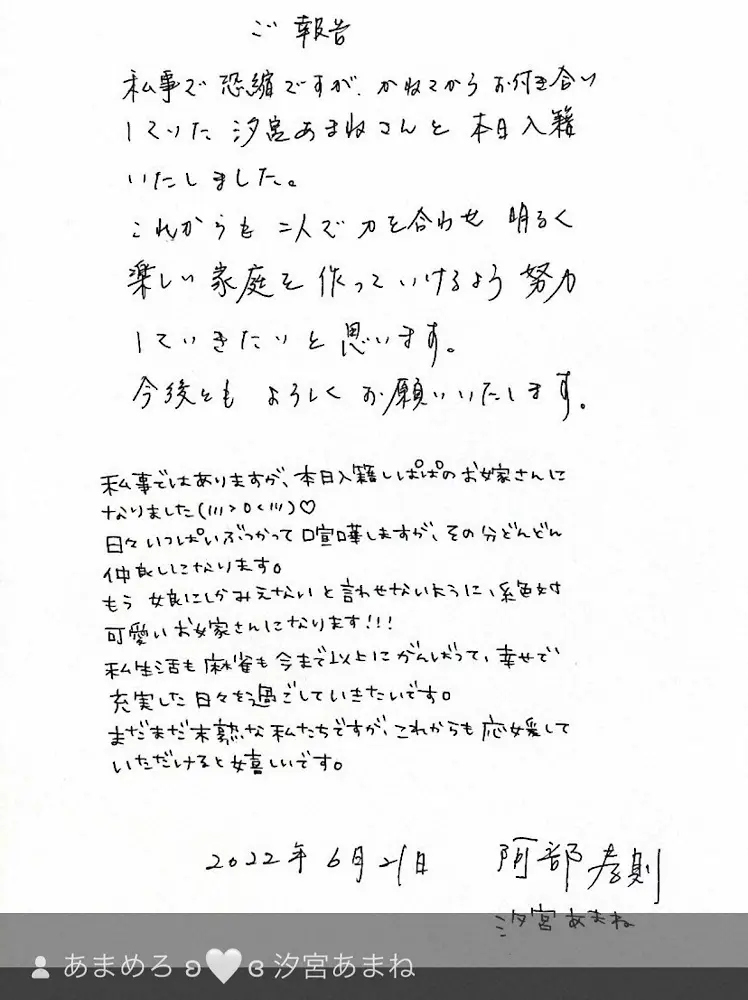 ご報告
私事で恐縮ですが、かねてからお付き合い
していた汐宮あまねさんと本日入籍
いたしました。
これからも二人で力を合わせ明るく
楽しい家庭を作っていけるよう努力
していきたいと思います。
今後ともよろしくお願いいたします。
私事ではありますが、本日入籍しぱぱのお嫁さんに
なりました(///>0<///)♡
日々いっぱいぶつかって喧嘩しますが、その分どんどん
仲良しになります。
もう娘にしかみえないと言わせないように、絶対
可愛いお嫁さんになります!!!
私生活も麻雀も今まで以上にがんばって、幸せで
充実した日々を過ごしていきたいです。
まだまだ未熟な私たちですが、これからも応援して
いただけると嬉しいです。
2022年6月21日 阿部孝則
汐宮あまね
あまめろ ʚ🤍ɞ 汐宮あまね